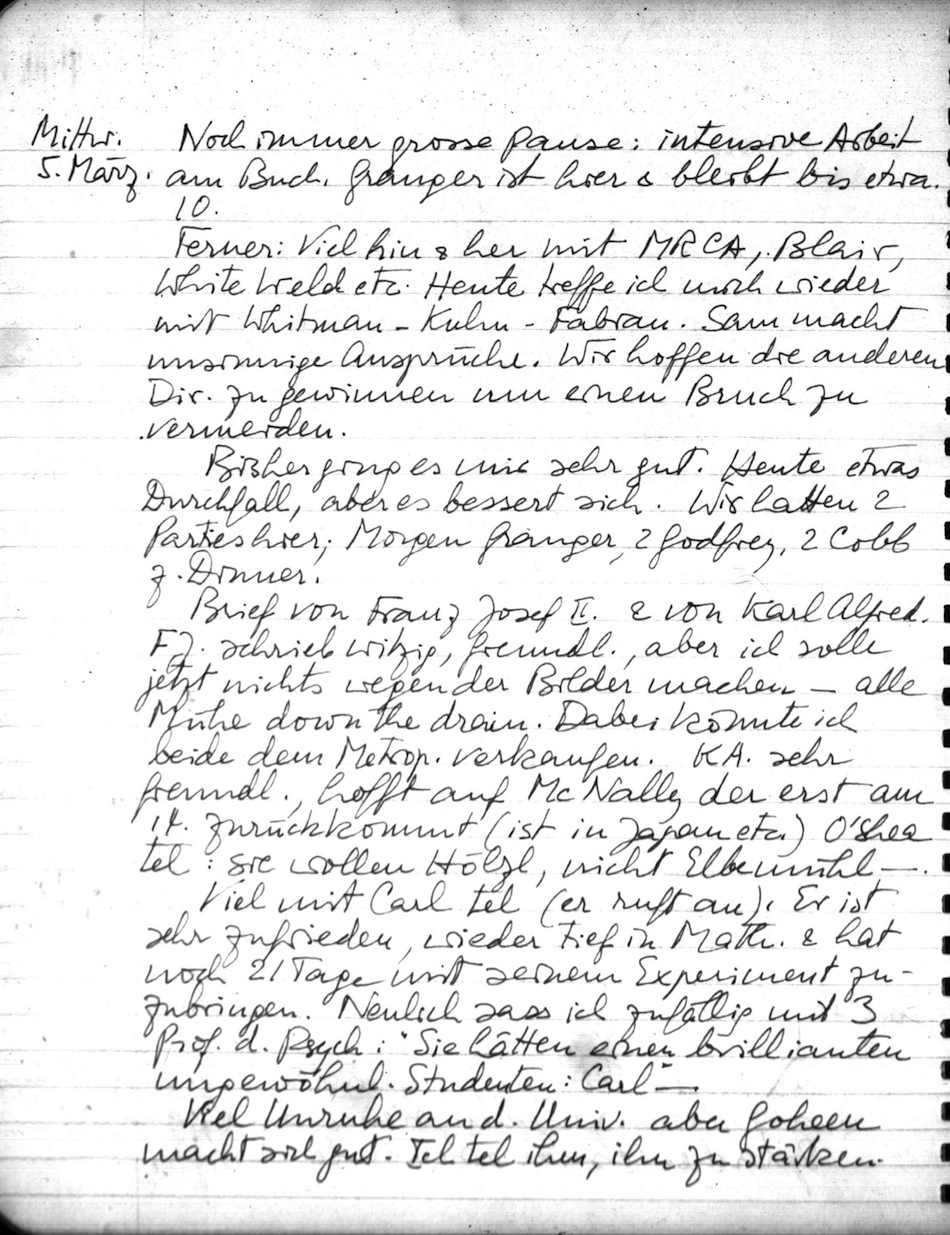 Mittw. Noch immer grosse Pause: intensive Arbeit
5. März. am Buch. Granger ist hier & bleibt bis etwa
10.
Ferner: Viel hin & her mit MRCA, Blair,
White Weld etc. Heute treffe ich mich wieder
mit Whitman – Kuhn – Fabian. Sam macht
unsinnige Ansprüche. Wir hoffen die anderen
Dir. zu gewinnen um einen Bruch zu
vermeiden.
Bisher ging es mir sehr gut. Heute etwas
Durchfall, aber es bessert sich. Wir hatten 2
Parties hier; Morgen Granger, 2 Godfrey, 2 Cobb
z. Dinner.
Brief von Franz Josef II. & von Karl Alfred.
FJ. schrieb witzig, freundl., aber ich solle
jetzt nichts wegen der Bilder machen – alle
Mühe down the drain. Dabei könnte ich
beide dem Metrop. verkaufen. KA. sehr
freundl., hofft auf McNally der erst am
14. zurückkommt (ist in Japan etc.) O'Shea
tel: sie wollen Hölzl, nicht Elbemühl –.
Viel mit Carl tel (er ruft an). Er ist
sehr zufrieden, wieder tief in Math. & hat
noch 21 Tage mit seinem Experiment zu-
zubringen. Neulich sass ich zufällig mit 3
Prof. d. Psych: "Sie hätten einen brillianten
ungewöhnl. Studenten: Carl" –
Viel Unruhe an d. Univ. aber Goheen
macht sich gut. Ich tel ihm, ihn zu stärken.